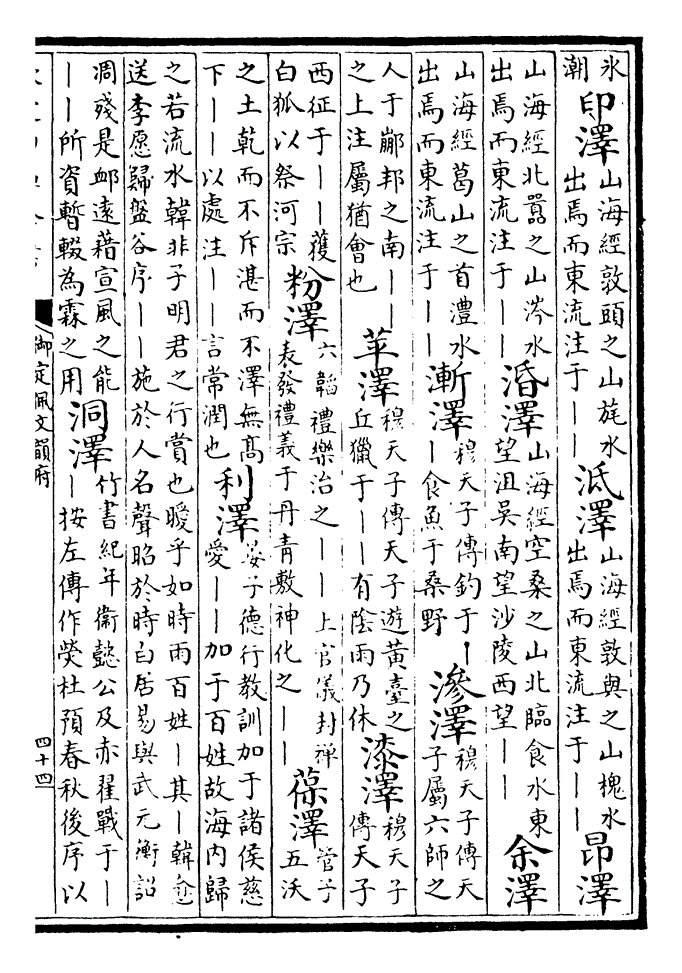 氷
潮
印澤
山海經敦頭之山旄水
出焉而東流注于——
泜澤
山海經敦與之山槐水
出焉而東流注于——
昂澤
山海經北嚻之山涔水
出焉而東流注于——
涽澤
山海經空桑之山北臨食水東
望沮吳南望沙陵西望——
余澤
山海經葛山之首澧水
出焉而東流注于——
漸澤
穆天子傳釣于—
—食魚于桑野
滲澤
穆天子傳天
子屬六師之
人于䣙邦之南——
之上注屬猶會也
苹澤
穆天子傳天子遊黃臺之
丘獵于——有陰雨乃休
漆澤
穆天子
傳天子
西征于——獲
白狐以祭河宗
粉澤
六韜禮樂治之——上官儀封禪
表發禮義于丹青敷神化之——
葆澤
管子
五沃
之土乾而不斥湛而不澤無高
下——以處注——言常潤也
利澤
晏子德行教訓加于諸侯慈
愛——加于百姓故海内歸
之若流水韓非子明君之行賞也曖乎如時雨百姓—其—韓愈
送李愿歸盤谷序——施於人名聲昭於時白居易與武元衡詔
凋殘是䘏遠藉宣風之能
——所資暫輟為霖之用
洞澤
竹書紀年衞懿公及赤翟戰于—
—按左傳作熒杜預春秋後序以
御定佩文韻府
四十四